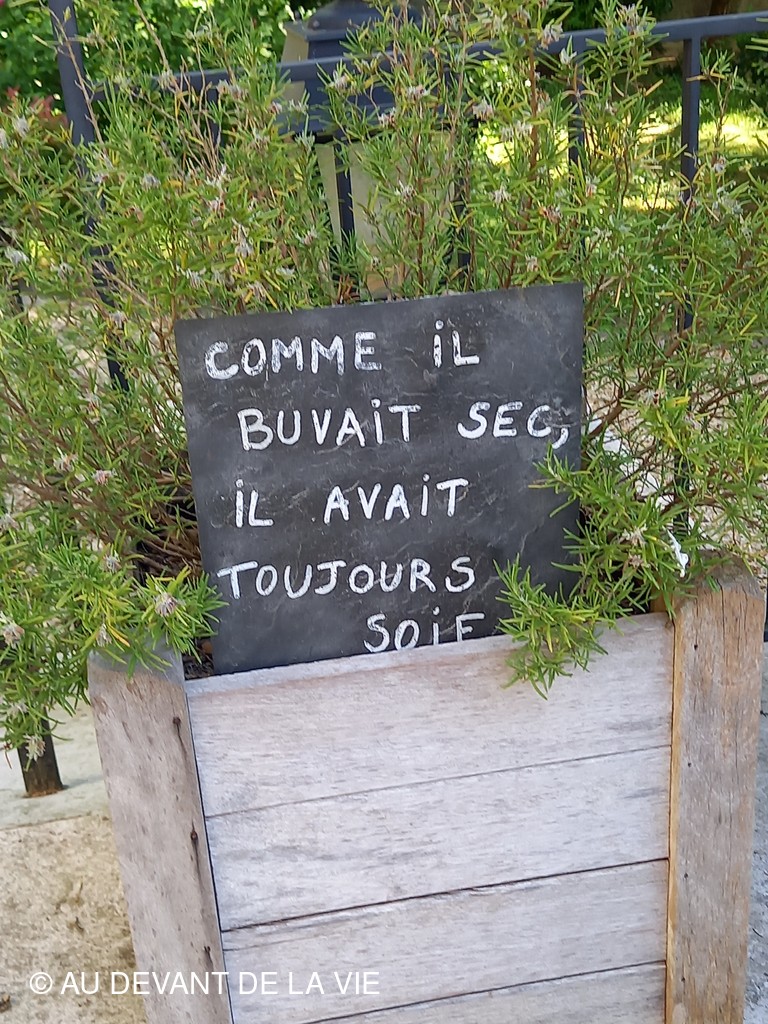 COMME iL
BUVAiT SEC,
iL AVAiT
TOUJOURS
SOiF
© AU DEVANT DE LA VIE